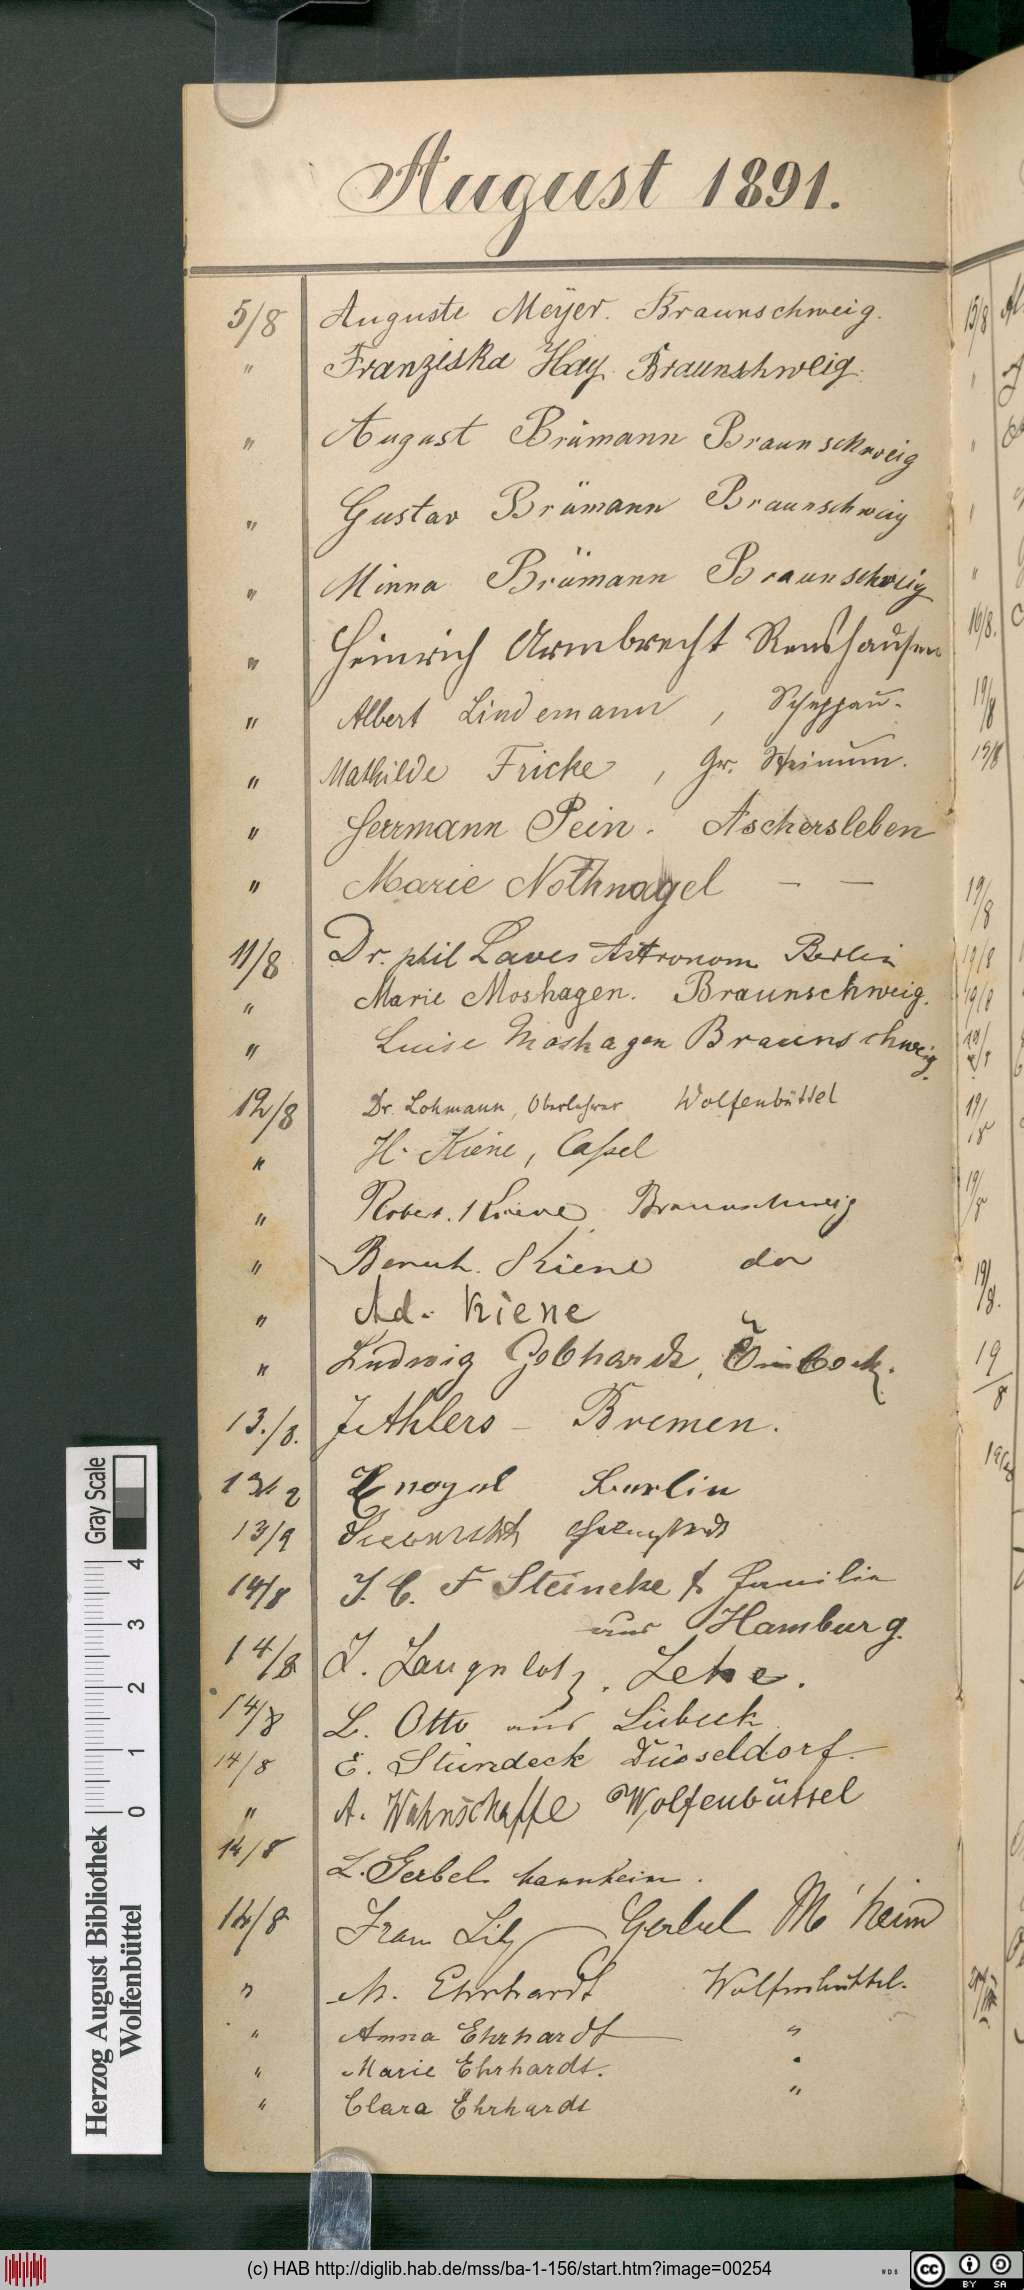 August 1891.
5/8 Auguste Meyer. Braunschweig.
" Franziska Hay. Braunshweig.
" August Brümann Braunschweig
" Gustav Brümann Braunschweig
" Minna Brümann Braunschweig
" Heinrich Armbrecht Renshausen
" Albert Lindemann, Scheppau.
" Mathilde Fricke, Gr. Steinum.
" Herrmann Pein. Aschersleben
" Marie Nothnagel — —
11/8 Dr. phil Laves Astronom Berlin
" Marie Moshagen. Braunschweig.
" Luise Moshagen Braunschweig.
12/8 Dr. Lohmann, Oberlehrer Wolfenbüttel
" H. Kiene, Cassel
" Robert Kiene, Braunschweig
" Bernh. Kiene do
" Ad. Kiene "
" Ludwig Gebhardt, Einbeck.
13./8. Ahlers – Bremen.
Berlin
14/8 J. C. F Steincke & Familie
aus Hamburg.
14/8 Lehe.
14/8 L. Otto aus Lübeck
14/8 E. Stündeck Düsseldorf.
" A. Wahnschaffe Wolfenbüttel
14/8
L. Gerbel Mannheim.
14/8 Frau Lily Gerbel M'heim
" M. Ehrhardt Wolfenbüttel.
" Anna Ehrhardt "
" Marie Ehrhardt. "
" Clara Ehrhardt "
15/8
16/8.
19/8
19/8
19/8
19/8
19/8
19/8
19/8
19/8.
19/8
Herzog August Bibliothek
Wolfenbüttel
Gray Scale
0 1 2 3 4
(c) HAB http://diglib.hab.de/mss/ba-1-156/start.htm?image=00254
WDB
cc BY SA